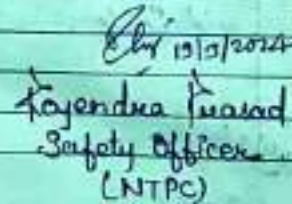 19/9/2024
Rajendra Prasad
Safety Officer
(NTPC)